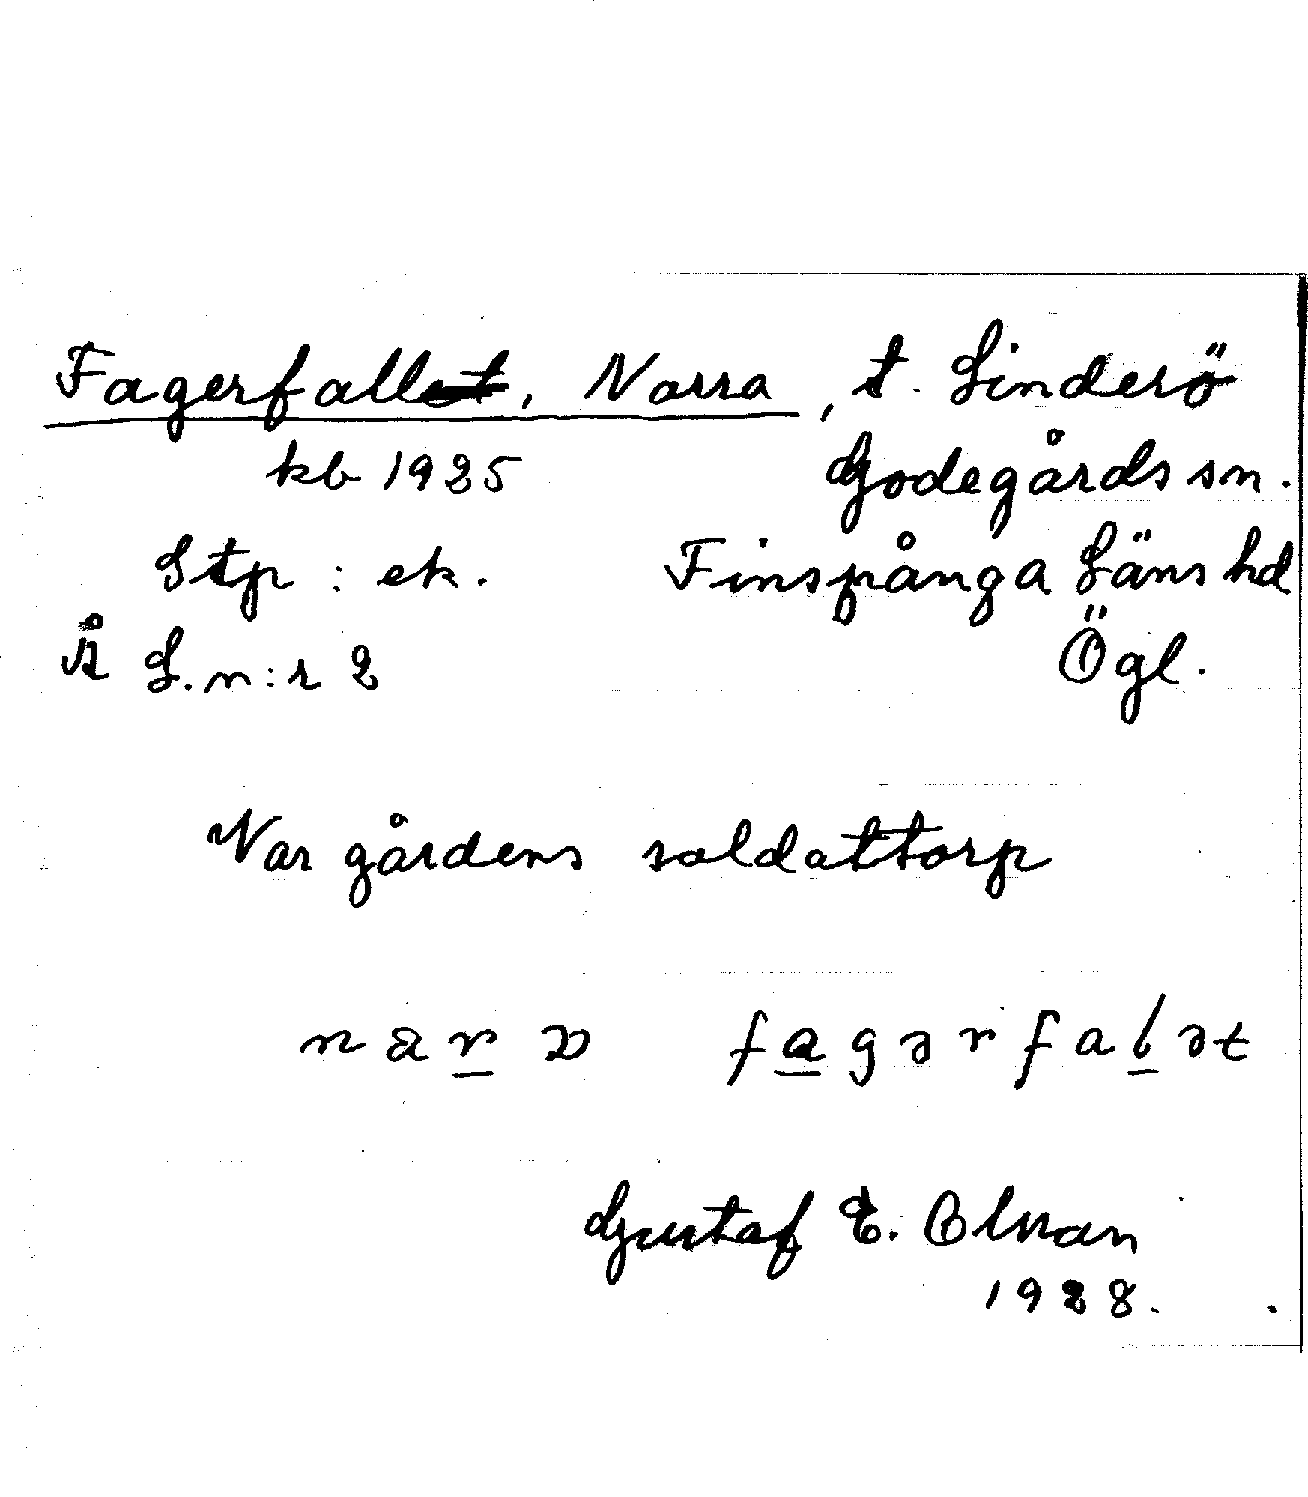 Fagerfallet, Norra, t. Linderö
kb 1925 Godegårds sn.
Stp : ek. Finspånga Läns hd
S.n:r 2 Ögl.
Var gårdens soldattorp
fagərfalət
Gustaf E. Olman
1928.